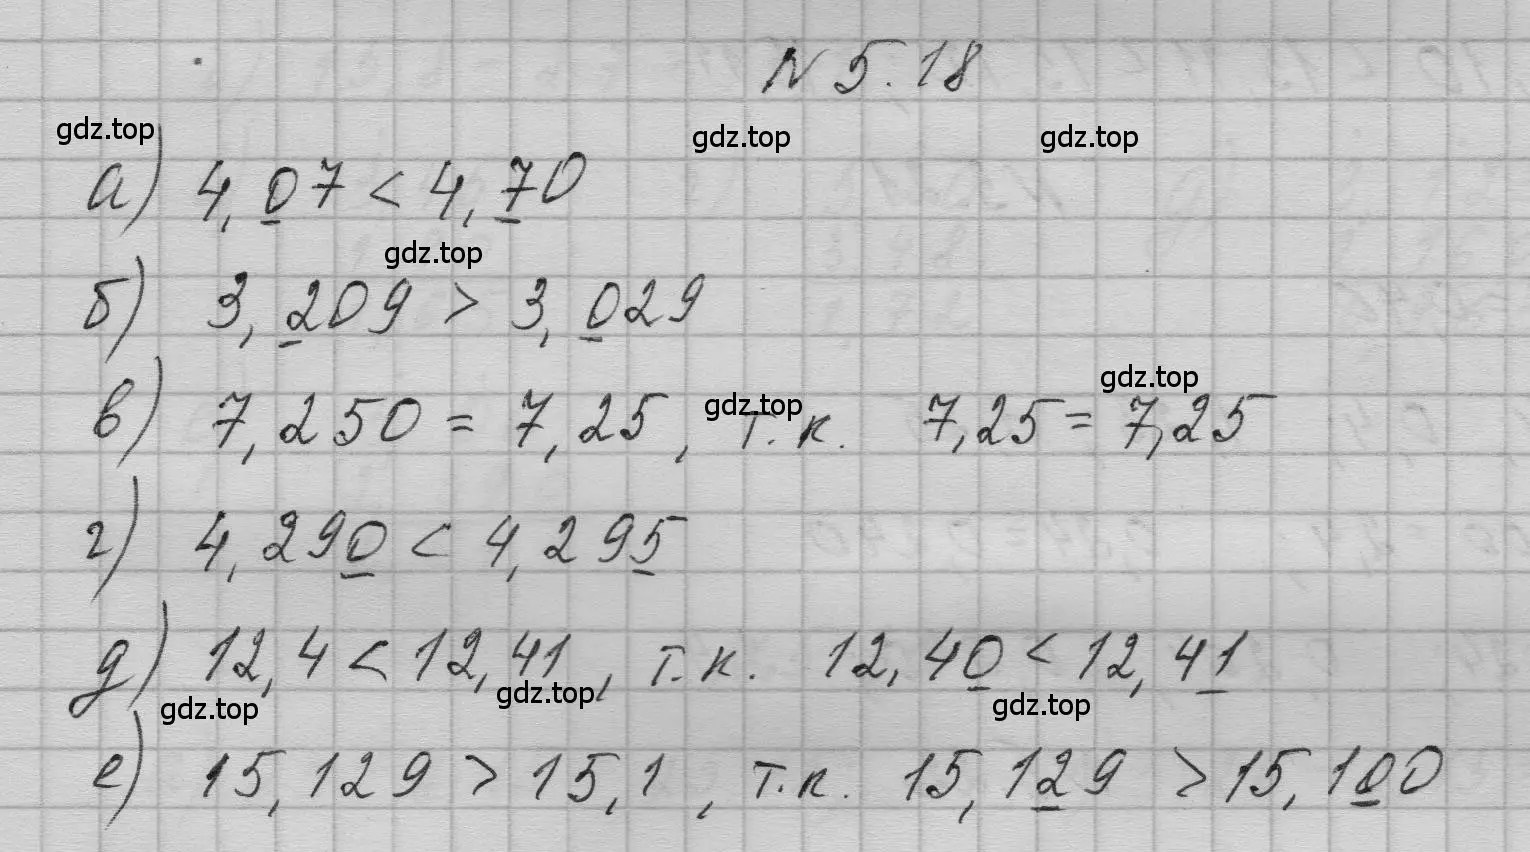 N 5.18
gdz.top
gdz.top
gdz.top
а) 4,07 < 4,70
gdz.top
б) 3,209 > 3,029
gdz.top
в) 7,250 = 7,25, т.к. 7,25 = 7,25
gdz.top
г) 4,290 < 4,295
д) 12,4 < 12,41, т.к. 12,40 < 12,41
gdz.top
gdz.top
gdz.top
е) 15,129 > 15,1, т.к. 15,129 > 15,100